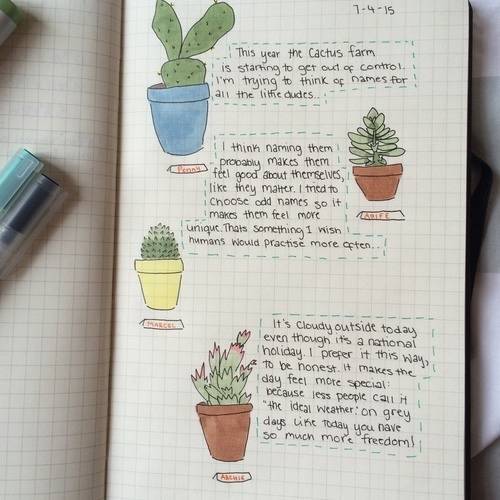 7-4-15
This year the Cactus farm
is starting to get out of control.
I'm trying to think of names for
all the little dudes..
Penny
I think naming them
probably makes them
feel good about themselves,
like they matter. I tried to
choose odd names so it
makes them feel more
unique. Thats something I wish
humans would practise more often...
AOIFE
MARCEL
It's cloudy outside today
even though it's a national
holiday. I prefer it this way,
to be honest. It makes the
day feel more special:
because less people call it
"the ideal weather." On grey
days like today you have
so much more freedom!
ARCHIE